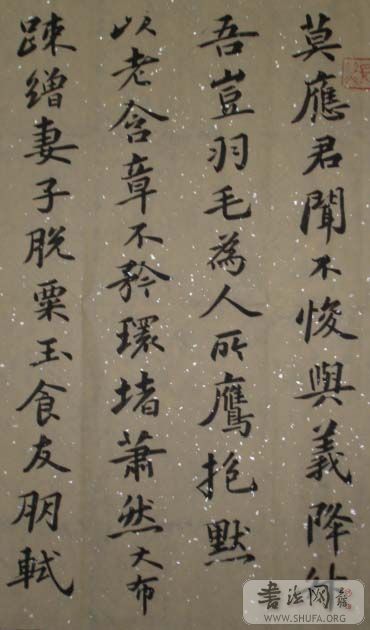 莫應君聞不悛與義降
吾豈羽毛為人所鷹抱默
以老含章不矜環堵蕭然大布
疎繒妻子脫粟玉食友朋軾
書法网
WWW.SHUFA.ORG